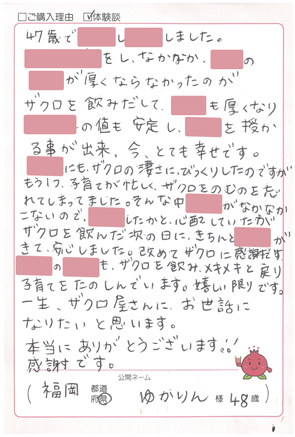 □ご購入理由 ☑体験談
47歳で し しました。
をし、なかなか、 の
が厚くならなかったのが
ザクロを飲みだして、 も厚くなり
の値も安定し、 を授か
る事が出来、今、とても幸せです。
にも、ザクロの凄さに、びっくりしたのですが
もう1つ、子育てが忙しく、ザクロをのむのを忘
れてしまってました。そんな中 がなかなか
こないので、 したかと、心配していたが
ザクロを飲んだ次の日に、きちんと が
きて、安心しました。改めてザクロに感謝です
の も、ザクロを飲み、メキメキと戻り
子育てをたのしんでいます。嬉しい限りです。
一生、ザクロ屋さんに、お世話に
なりたいと思います。
本当にありがとうございます!!
感謝です。
公開ネーム
(福岡 都道府県 ゆかりん 様 48歳)